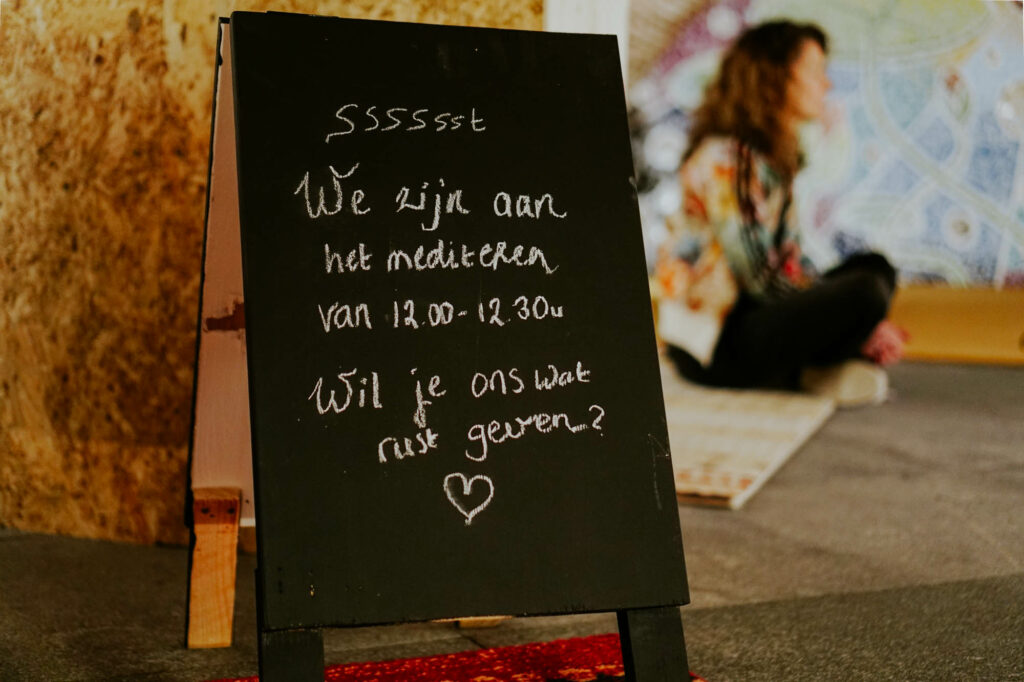 Sssssst
We zijn aan
het mediteren
van 12.00-12.30u
Wil je ons wat
rust geven?